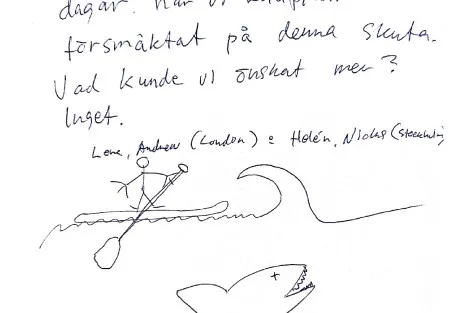 dagar. Här vi
försmäktat på denna skuta.
Vad kunde vi önskat mer?
Inget.
Lena, Andrew (London) & Helén, Nicke (Stockholm)